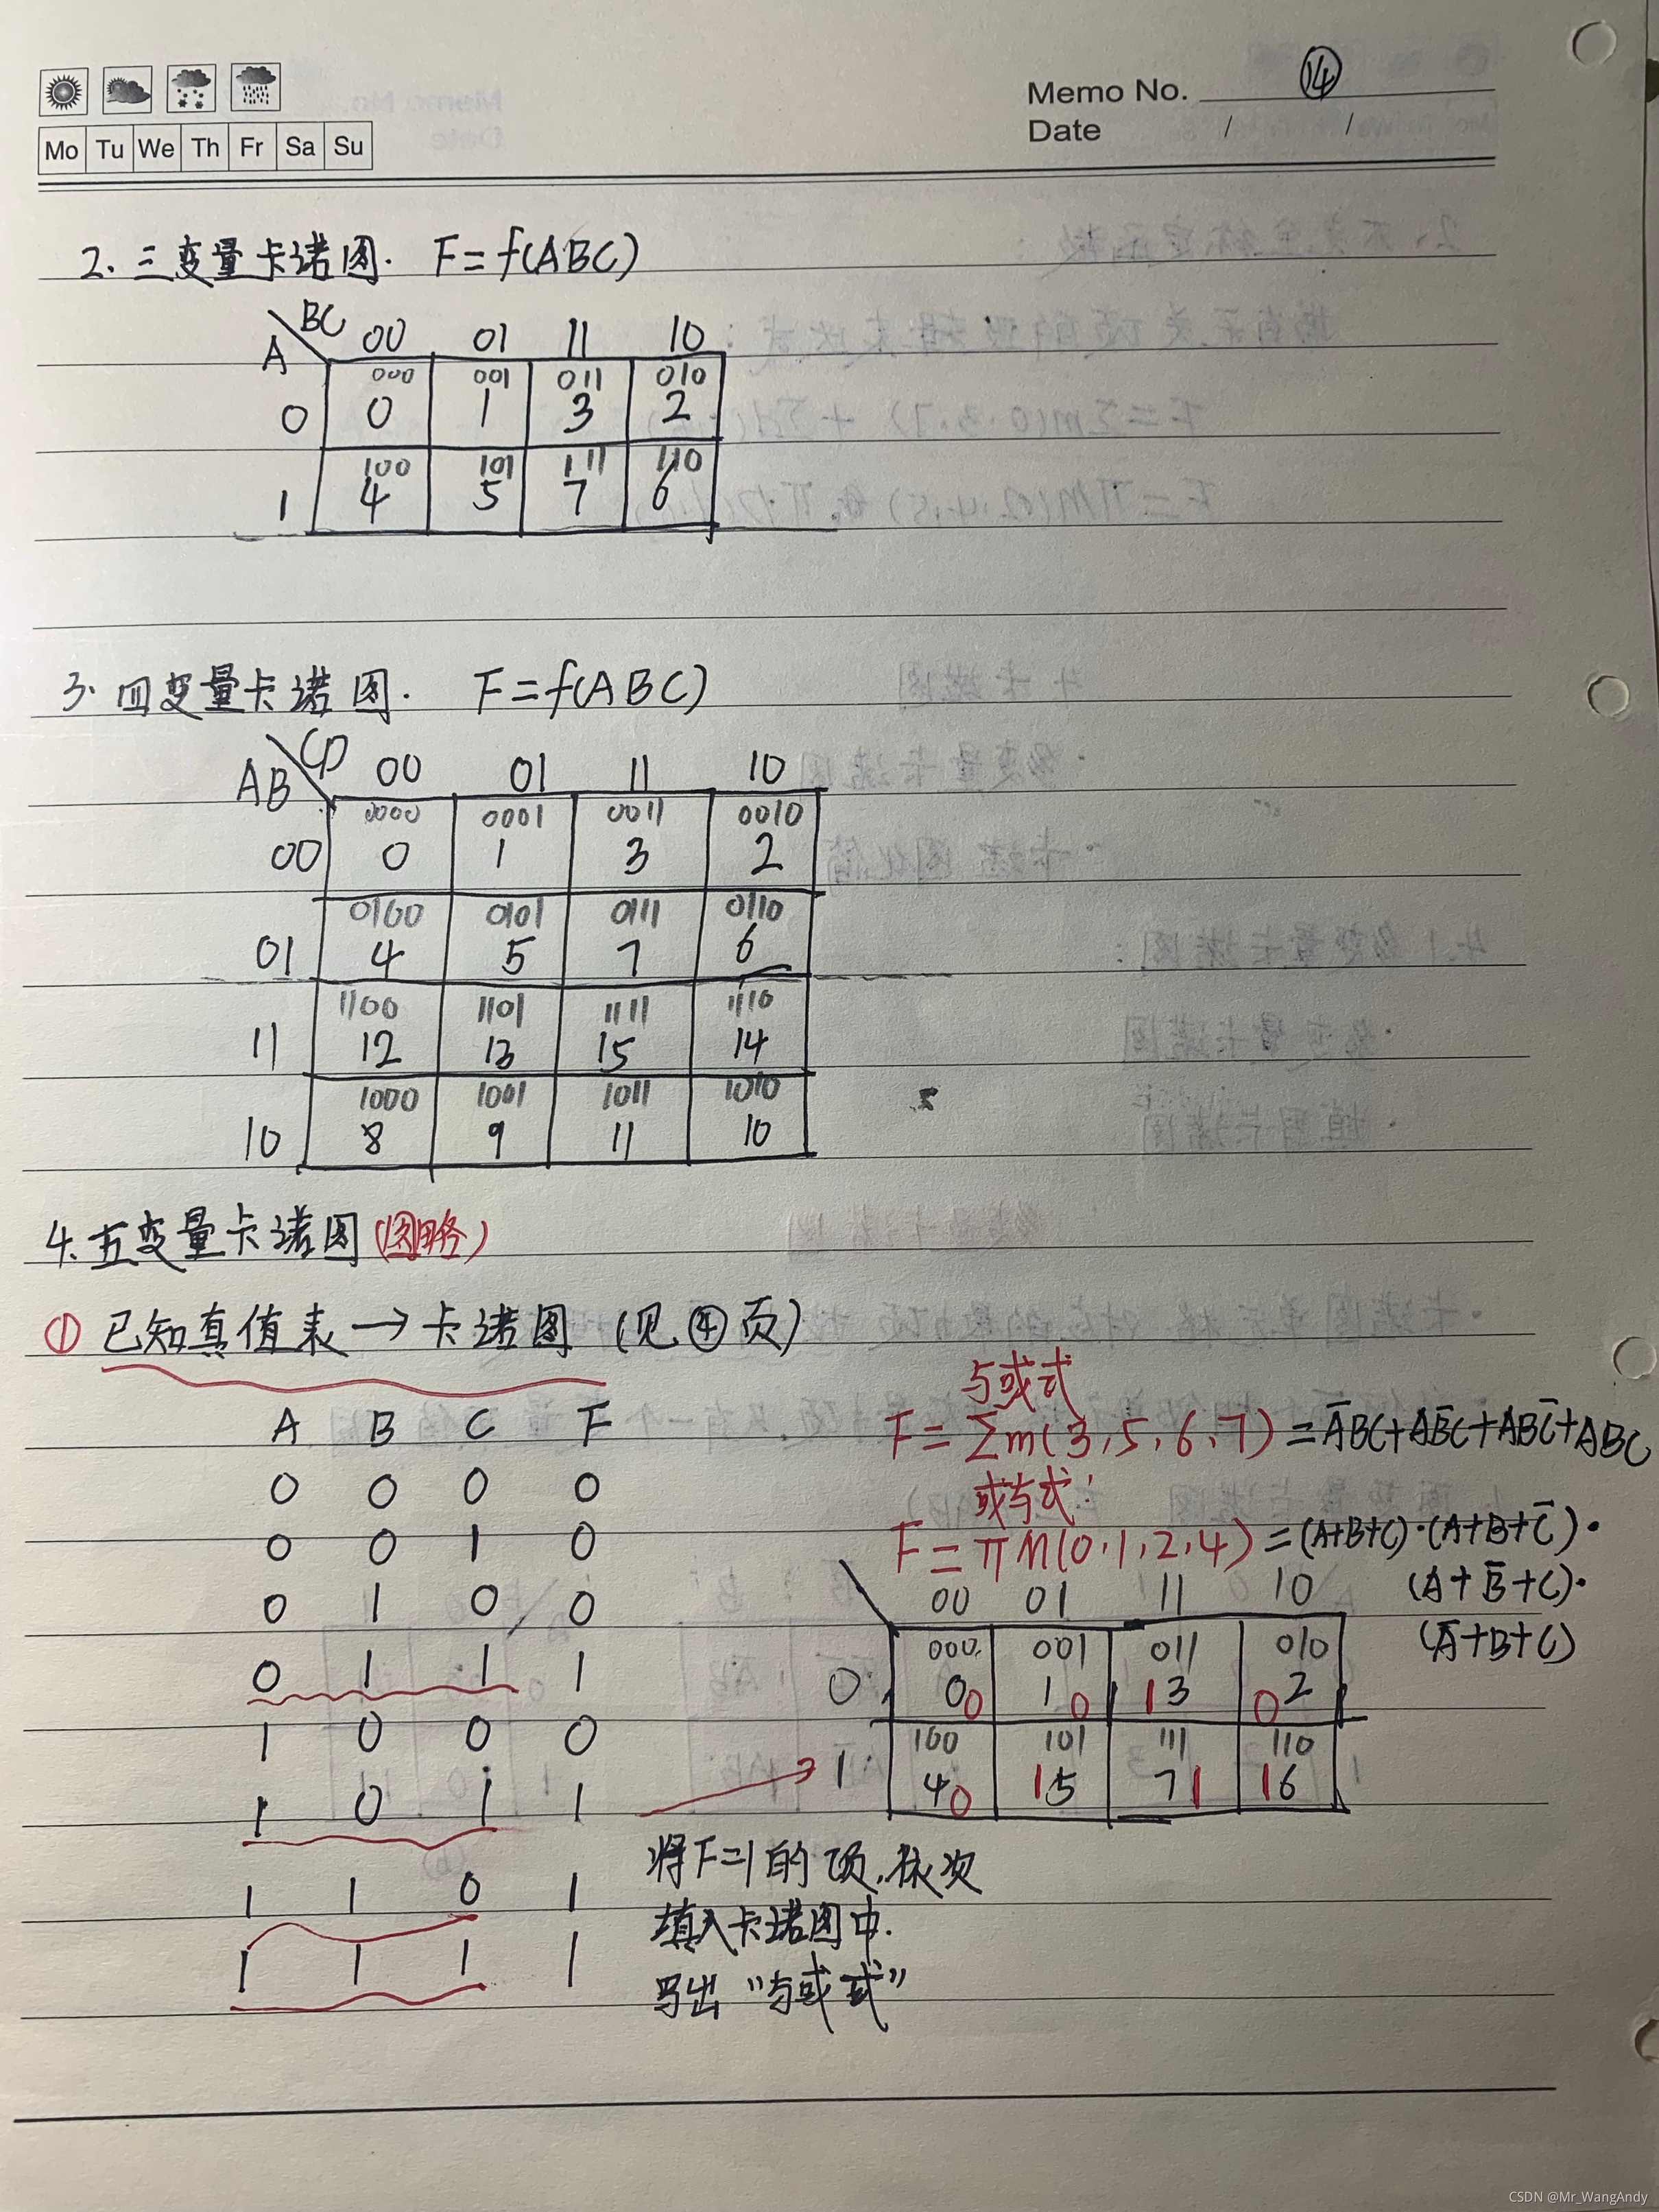 Memo No. ⑭
Date / /
Mo Tu We Th Fr Sa Su
2. 三变量卡诺图. F=f(ABC)
A BC 00 01 11 10
000 001 011 010
0 0 1 3 2
100 101 111 110
1 4 5 7 6
3. 四变量卡诺图. F=f(ABC)
AB CD 00 01 11 10
0000 0001 0011 0010
00 0 1 3 2
0100 0101 0111 0110
01 4 5 7 6
1100 1101 1111 1110
11 12 13 15 14
1000 1001 1011 1010
10 8 9 11 10
4. 五变量卡诺图(图略)
① 已知真值表→卡诺图 (见④页)
与或式
F=Σm(3,5,6,7)=A̅BC+AB̅C+ABC̅+ABC
或与式
F=πM(0,1,2,4)=(A+B+C)·(A+B+C̅)·
(A+B̅+C)·
(A̅+B+C)
A B C F
0 0 0 0
0 0 1 0
0 1 0 0
0 1 1 1
1 0 0 0
1 0 1 1
1 1 0 1
1 1 1 1
00 01 11 10
000 001 011 010
0 0 0 1 0 1 3 0 2
100 101 111 110
1 4 0 1 5 7 1 1 6
将F=1的项,依次
填入卡诺图中.
写出"与或式"
CSDN @Mr_WangAndy